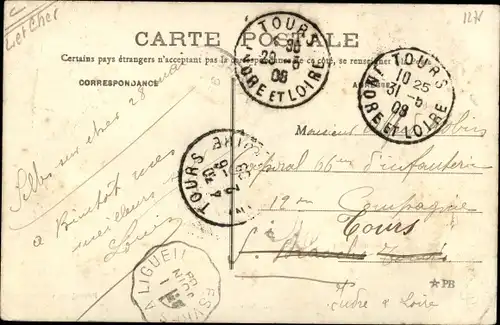 Loir et Cher
1278
CARTE POSTALE
Certains pays étrangers n'acceptant pas la correspondance de ce côté, se renseigner
CORRESPONDANCE
ADRESSE
TOURS
5
08
INDRE ET LOIRE
TOURS
10 25
31 - 5
08
INDRE ET LOIRE
TOURS
Selles sur cher 28 mai
à Bientôt mes
meilleurs
Louis
Monsieur
Caporal 66ème d'infanterie
12em Compagnie
Tours
Indre & Loire
LIGUEIL
JUIN
08
★PB